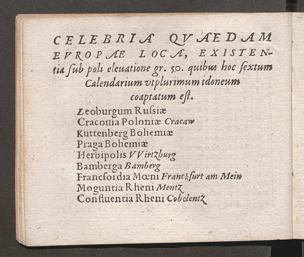 CELEBRIA QVAEDAM
EVROPAE LOCA, EXISTEN-
tia sub poli eleuatione gr. 50. quibus hoc sextum
Calendarium vtplurimum idoneum
coaptatum est.
Leoburgum Russiæ
Cracouia Poloniæ Cracaw
Kuttenberg Bohemiæ
Praga Bohemiæ
Herbipolis VVirtzburg
Bamberga Bamberg
Francfordia Mœni Franckfurt am Mein
Moguntia Rheni Mentz
Confluentia Rheni Cobolentz